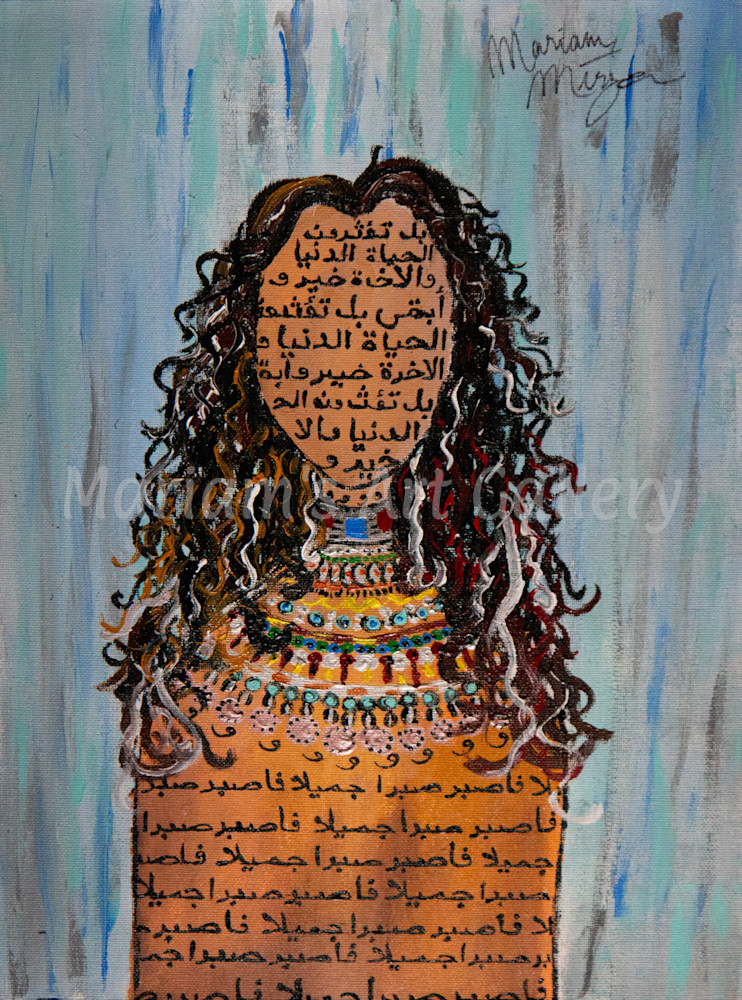 Mariam
Mirza
بل تؤثرون
الحياة الدنيا
والاخرة خير و
أبقى بل تؤثرون
الحياة الدنيا و
الاخرة خير وابة
بل تؤثرون الح
الدنيا والا
خير و
Mariam's Art Gallery
لا فاصبر صبرا جميلا فاصبر صبر
فاصبر صبرا جميلا فاصبر صبرا
جميلا فاصبر صبرا جميلا فاصبر
صبرا جميلا فاصبر صبرا جميلا
لا فاصبر صبرا جميلا فاصبر ص
بر صبرا جميلا فاصبر صبرا جم
فاصبر صبرا جميلا فاصبر ص